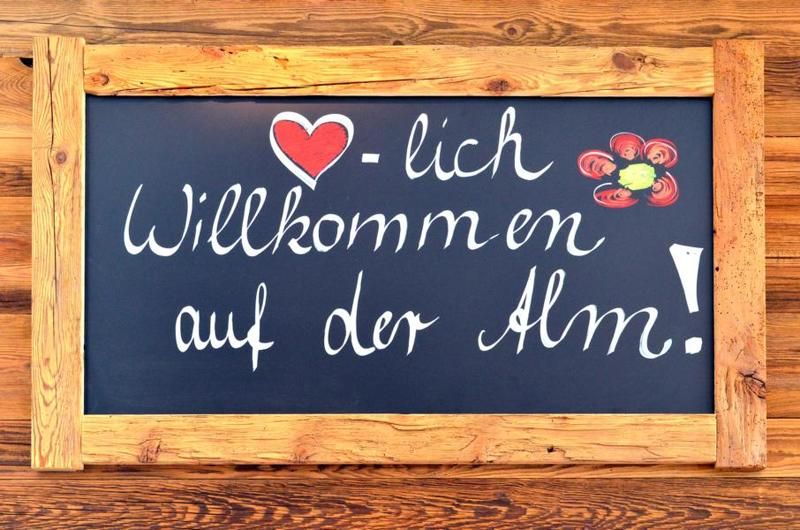 ❤-lich
Willkommen
auf der Alm!